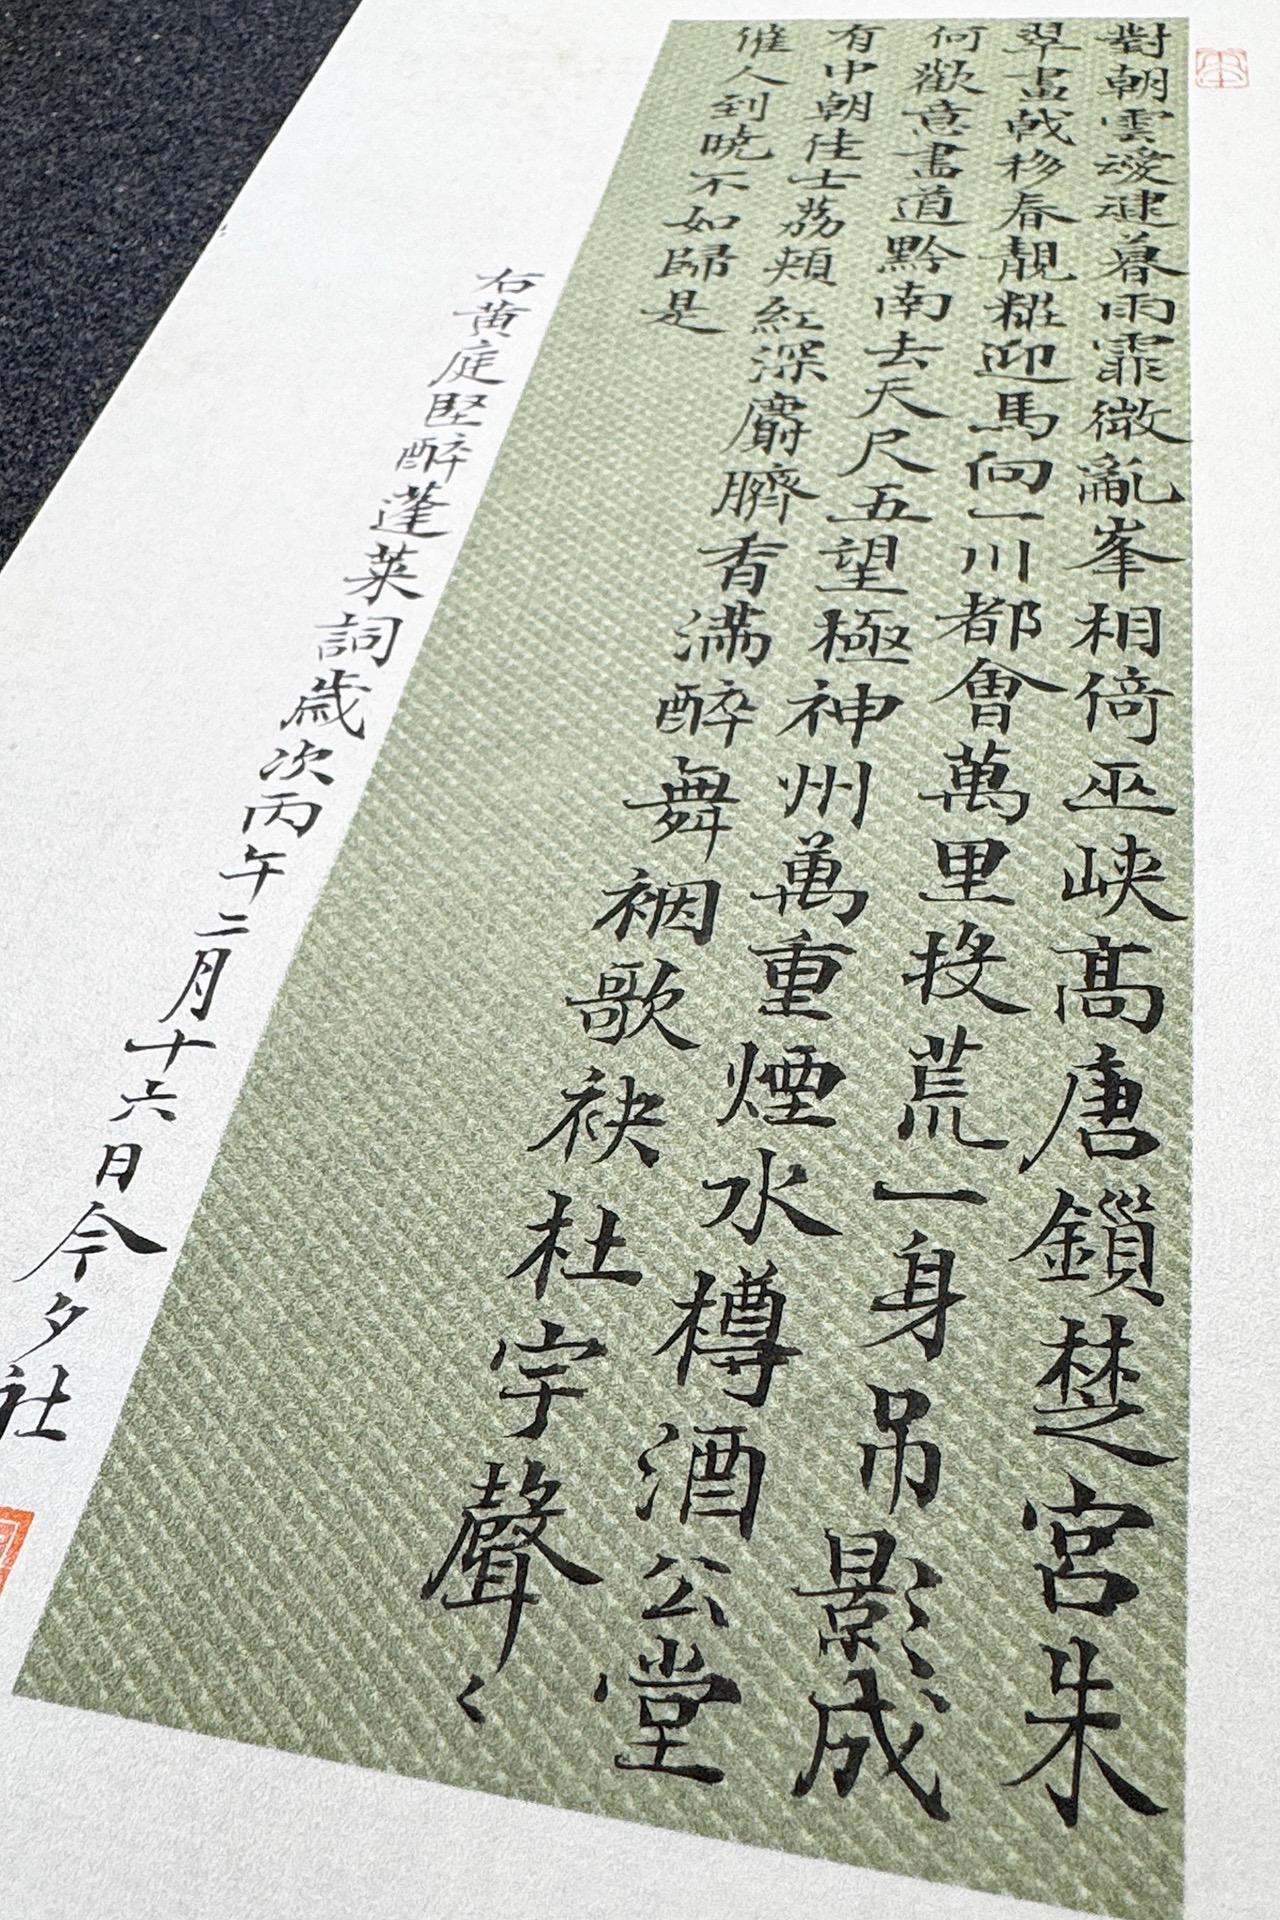 對朝雲叆叇暮雨霏微亂峯相倚巫峽高唐鎖楚宮朱
翠畫戟移春靚糚迎馬向一川都會萬里投荒一身吊影成
何歡意盡道黔南去天尺五望極神州萬重煙水樽酒公堂
有中朝佳士荔頰紅深麝臍香滿醉舞裀歌袂杜宇聲々
催人到曉不如歸是
右黄庭堅醉蓬萊詞歲次丙午二月十六日今夕社